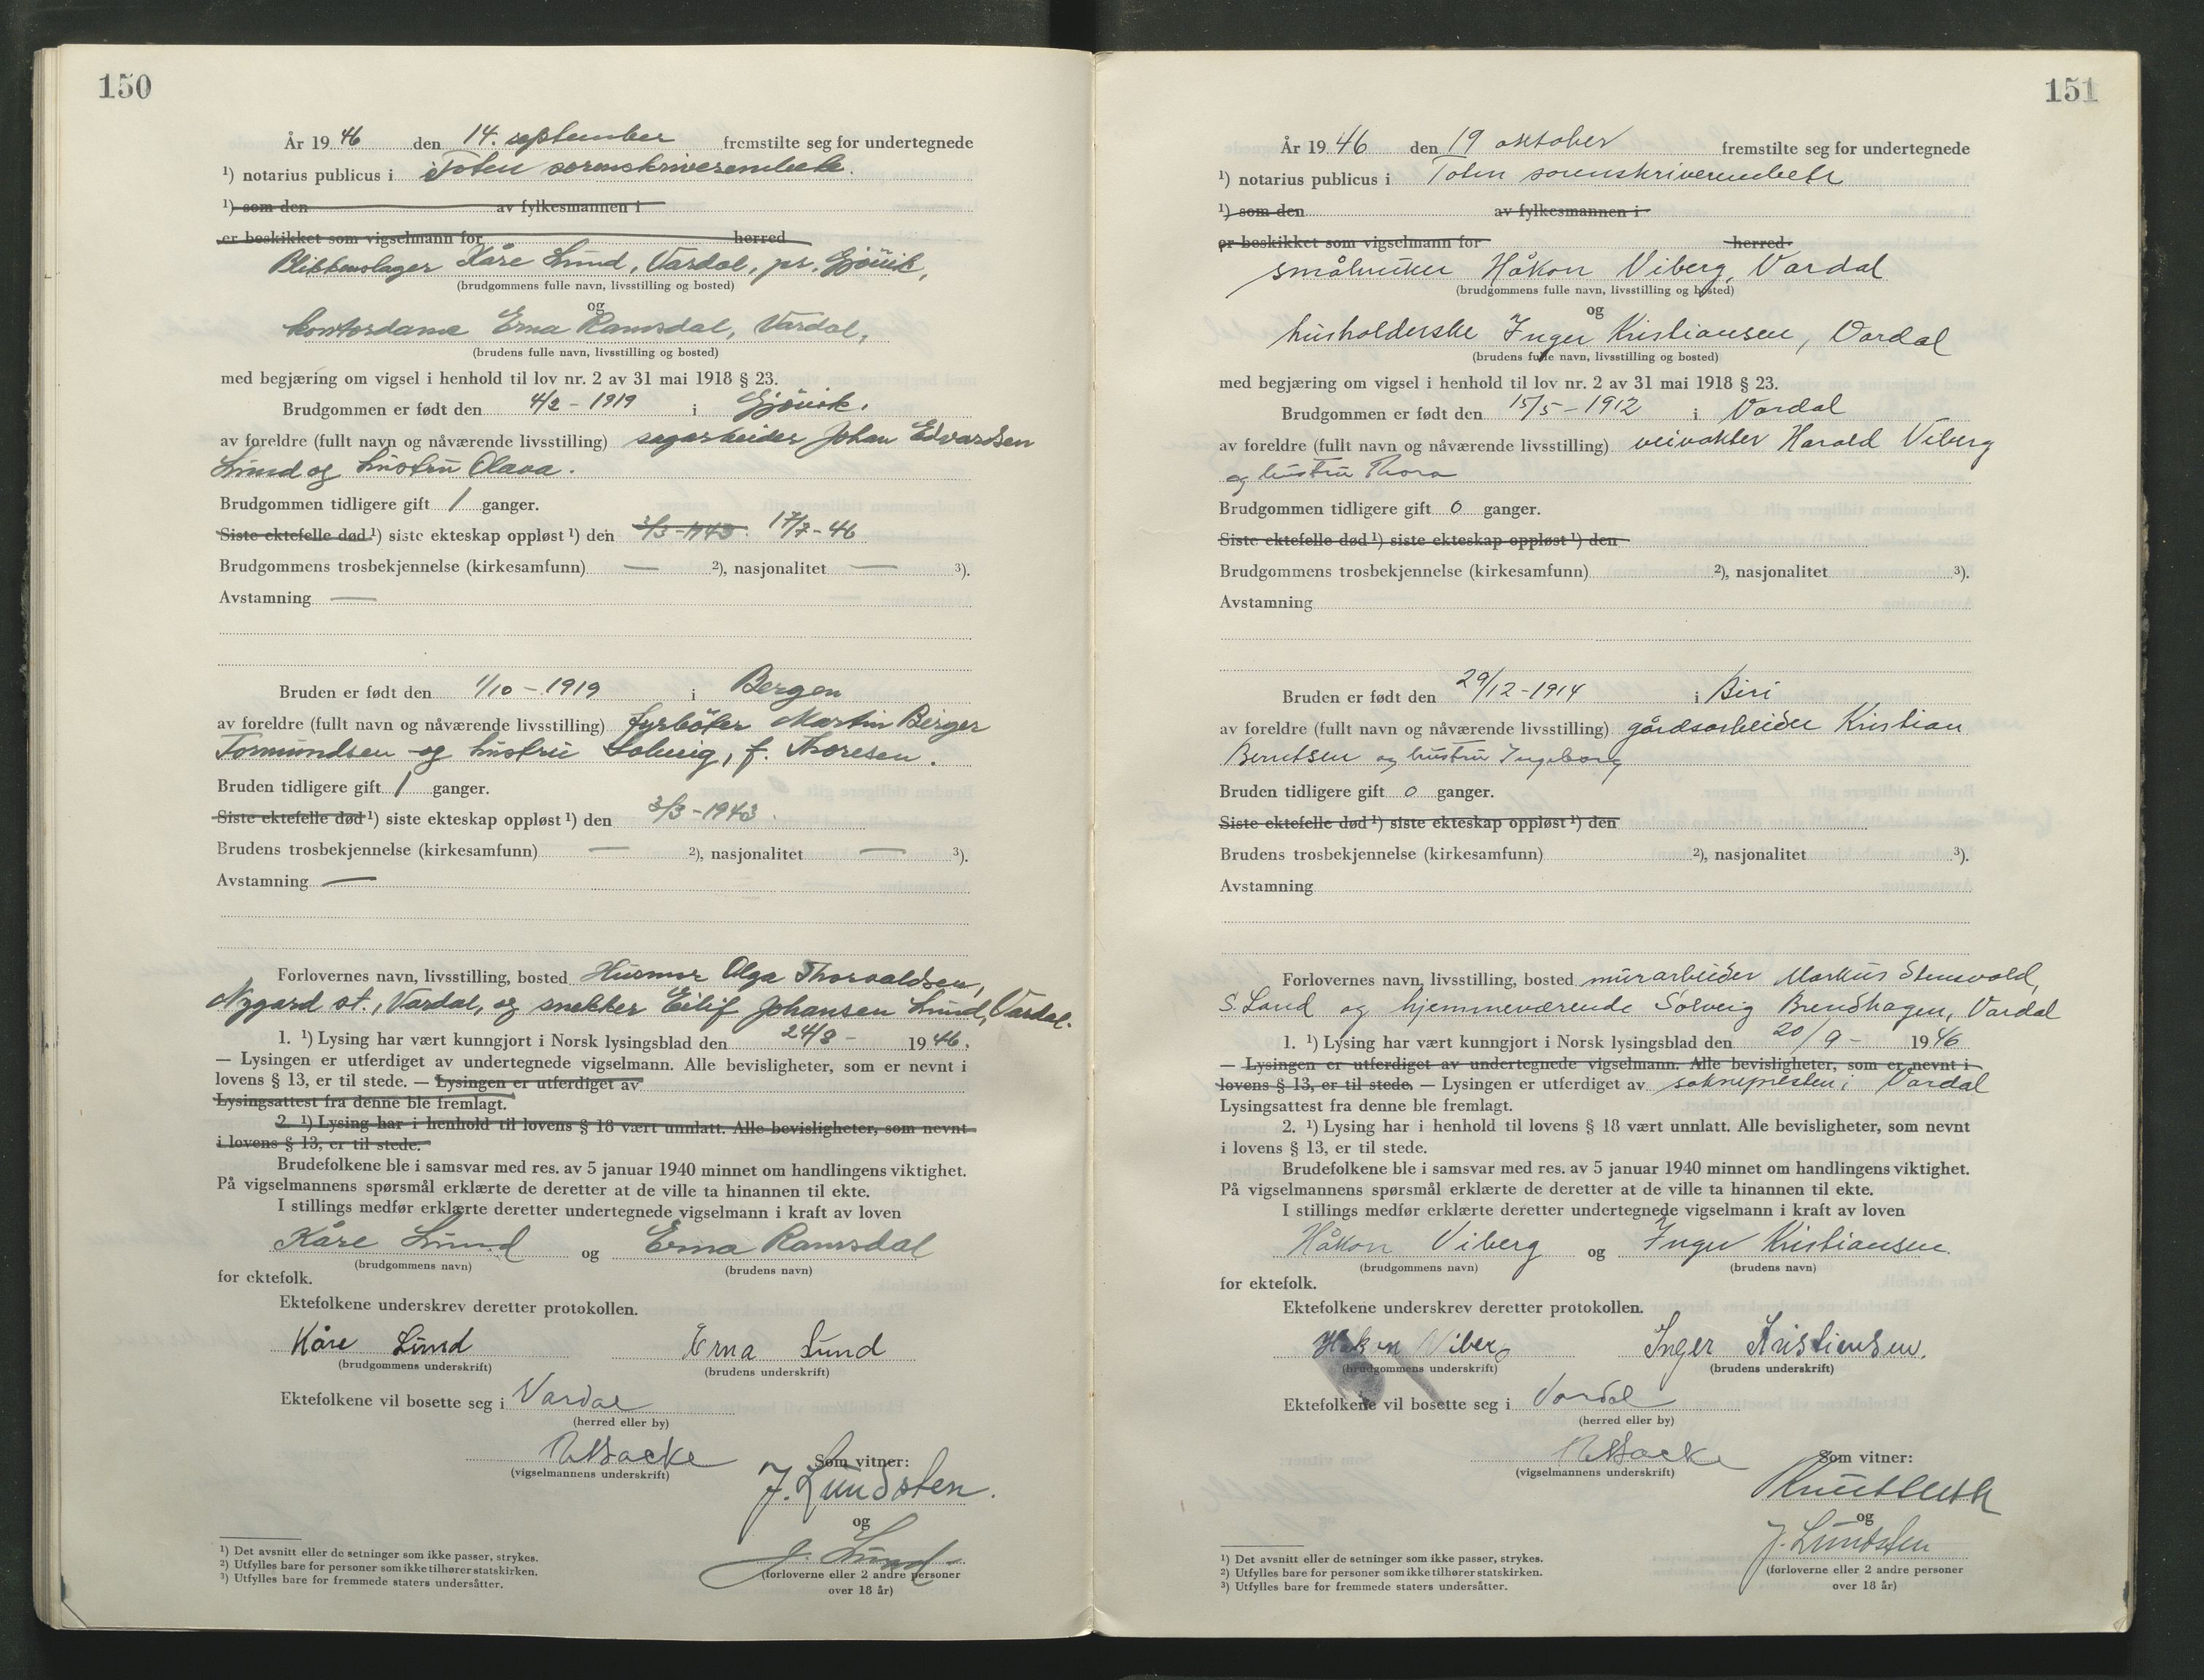 150
År 19 46 den 14. september fremstilte seg for undertegnede
¹) notarius publicus i Toten sorenskriverembete.
¹) som den av fylkesmannen i
er beskikket som vigselmann for herred
Blikkenslager Kåre Lund, Vardal, pr. Gjövik,
(brudgommens fulle navn, livsstilling og bosted)
og
kontordame Erna Ramsdal, Vardal,
(brudens fulle navn, livsstilling og bosted)
med begjæring om vigsel i henhold til lov nr. 2 av 31 mai 1918 § 23.
Brudgommen er født den 4/2 - 1919 i Gjövik.
av foreldre (fullt navn og nåværende livsstilling) sagarbeider Johan Edvardsen
Lund og hustru Olava.
Brudgommen tidligere gift 1 ganger.
Siste ektefelle død ¹) siste ekteskap oppløst ¹) den 3/3-1943. 17/7-46
Brudgommens trosbekjennelse (kirkesamfunn) — ²), nasjonalitet — ³).
Avstamning —
Bruden er født den 1/10 - 1919 i Bergen
av foreldre (fullt navn og nåværende livsstilling) fyrböter Martin Berger
Tormundsen og hustru Solveig, f. Thoresen.
Bruden tidligere gift 1 ganger.
Siste ektefelle død ¹) siste ekteskap oppløst ¹) den 3/3-1943.
Brudens trosbekjennelse (kirkesamfunn) — ²), nasjonalitet — ³).
Avstamning —
Forlovernes navn, livsstilling, bosted Husmor Olga Thorvaldsen,
Nygard st., Vardal, og snekker Eilif Johansen Lund, Vardal.
1. ¹) Lysing har vært kunngjort i Norsk lysingsblad den 24/8 - 19 46.
— Lysingen er utferdiget av undertegnede vigselmann. Alle bevisligheter, som er nevnt i
lovens § 13, er til stede. — Lysingen er utferdiget av
Lysingsattest fra denne ble fremlagt.
2. ¹) Lysing har i henhold til lovens § 18 vært unnlatt. Alle bevisligheter, som nevnt
i lovens § 13, er til stede.
Brudefolkene ble i samsvar med res. av 5 januar 1940 minnet om handlingens viktighet.
På vigselmannens spørsmål erklærte de deretter at de ville ta hinannen til ekte.
I stillings medfør erklærte deretter undertegnede vigselmann i kraft av loven
Kåre Lund og Erna Ramsdal
(brudgommens navn) (brudens navn)
for ektefolk.
Ektefolkene underskrev deretter protokollen.
Kåre Lund Erna Lund
(brudgommens underskrift) (brudens underskrift)
Ektefolkene vil bosette seg i Vardal
(herred eller by)
(vigselmannens underskrift)
Som vitner:
J. Lundsten.
og
J. Lund
(forloverne eller 2 andre personer
over 18 år)
¹) Det avsnitt eller de setninger som ikke passer, strykes.
²) Utfylles bare for personer som ikke tilhører statskirken.
³) Utfylles bare for fremmede staters undersåtter.
151
År 19 46 den 19 oktober fremstilte seg for undertegnede
¹) notarius publicus i Toten sorenskriverembete
¹) som den av fylkesmannen i
er beskikket som vigselmann for herred
småbruker Håkon Viberg, Vardal
(brudgommens fulle navn, livsstilling og bosted)
og
husholderske Inger Kristiansen, Vardal
(brudens fulle navn, livsstilling og bosted)
med begjæring om vigsel i henhold til lov nr. 2 av 31 mai 1918 § 23.
Brudgommen er født den 15/5 - 1912 i Vardal
av foreldre (fullt navn og nåværende livsstilling) veivokter Harald Viberg
og hustru Thora
Brudgommen tidligere gift 0 ganger.
Siste ektefelle død ¹) siste ekteskap oppløst ¹) den
Brudgommens trosbekjennelse (kirkesamfunn) ²), nasjonalitet ³).
Avstamning
Bruden er født den 29/12-1914 i Biri
av foreldre (fullt navn og nåværende livsstilling) gårdsarbeider Kristian
Berntsen og hustru Ingeborg
Bruden tidligere gift 0 ganger.
Siste ektefelle død ¹) siste ekteskap oppløst ¹) den
Brudens trosbekjennelse (kirkesamfunn) ²), nasjonalitet ³).
Avstamning
Forlovernes navn, livsstilling, bosted murarbeider Markus Stensvold,
S. Land og hjemmeværende Solveig Brendhagen, Vardal
1. ¹) Lysing har vært kunngjort i Norsk lysingsblad den 20/9 - 19 46
— Lysingen er utferdiget av undertegnede vigselmann. Alle bevisligheter, som er nevnt i
lovens § 13, er til stede. — Lysingen er utferdiget av soknepresten i Vardal
Lysingsattest fra denne ble fremlagt.
2. ¹) Lysing har i henhold til lovens § 18 vært unnlatt. Alle bevisligheter, som nevnt
i lovens § 13, er til stede.
Brudefolkene ble i samsvar med res. av 5 januar 1940 minnet om handlingens viktighet.
På vigselmannens spørsmål erklærte de deretter at de ville ta hinannen til ekte.
I stillings medfør erklærte deretter undertegnede vigselmann i kraft av loven
Håkon Viberg og Inger Kristiansen.
(brudgommens navn) (brudens navn)
for ektefolk.
Ektefolkene underskrev deretter protokollen.
Håkon Viberg Inger Kristiansen.
(brudgommens underskrift) (brudens underskrift)
Ektefolkene vil bosette seg i Vardal
(herred eller by)
(vigselmannens underskrift)
Som vitner:
og
J. Lundsten
(forloverne eller 2 andre personer
over 18 år)
¹) Det avsnitt eller de setninger som ikke passer, strykes.
²) Utfylles bare for personer som ikke tilhører statskirken.
³) Utfylles bare for fremmede staters undersåtter.